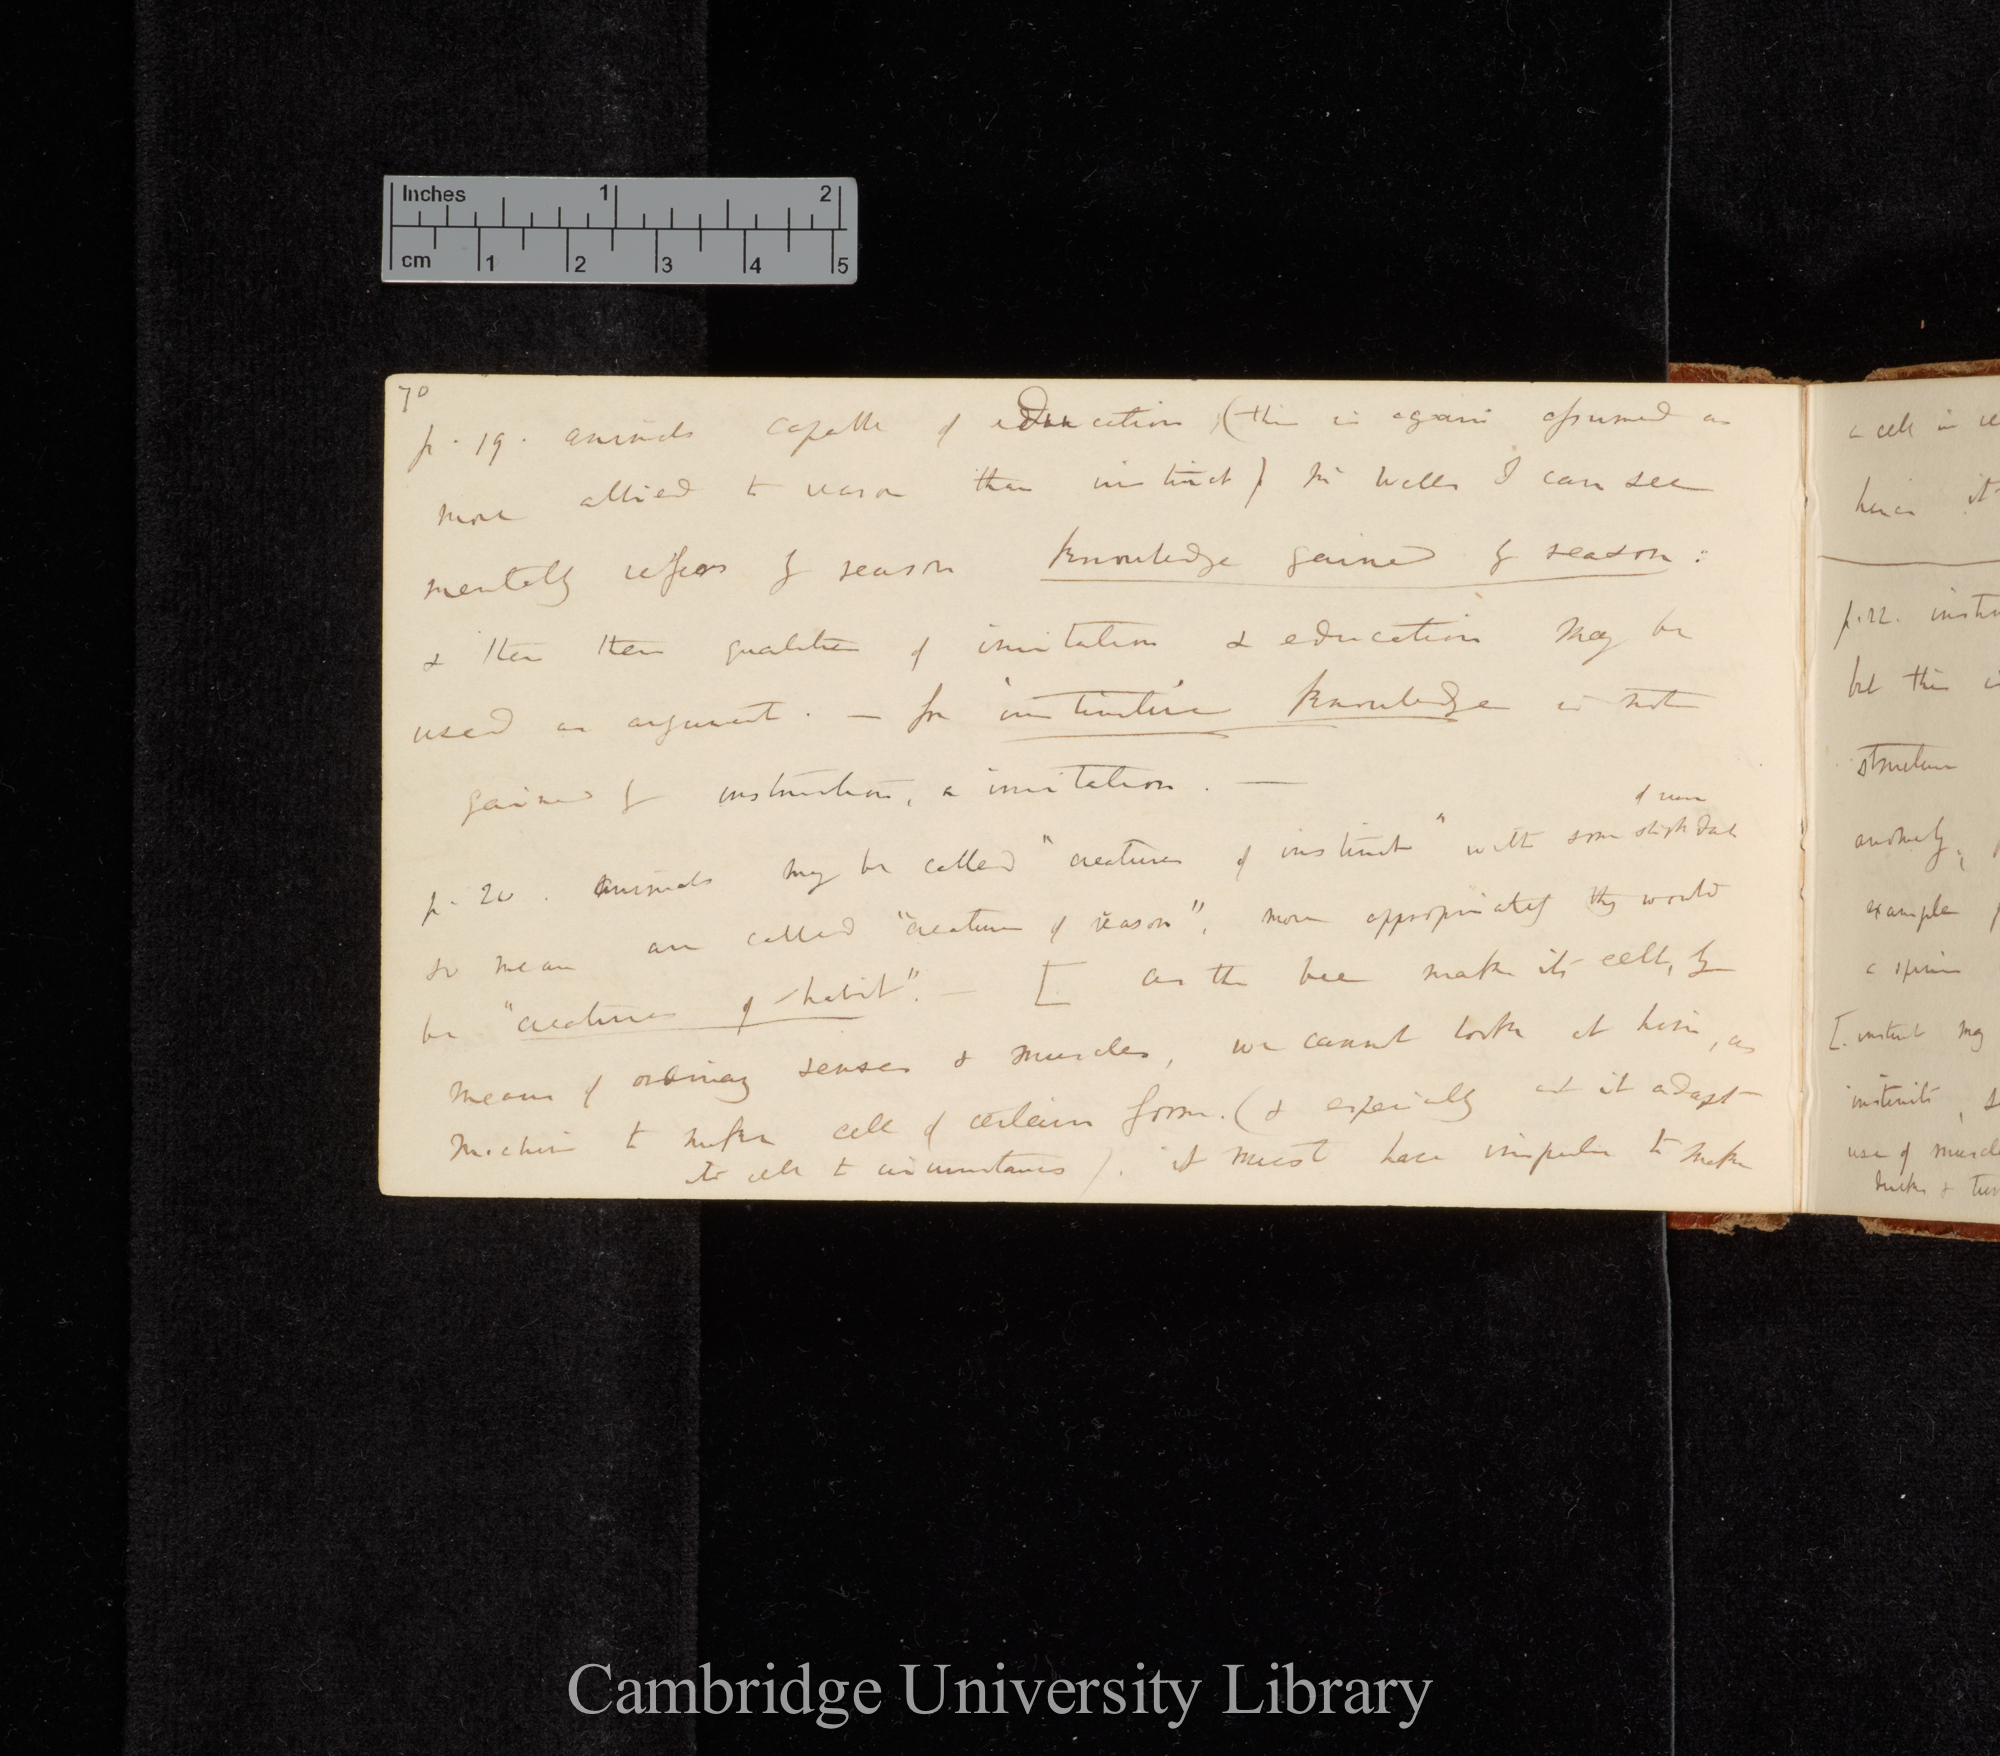 Inches 1 2
cm 1 2 3 4 5
70
p. 19. animals capable of education (this is again assumed as
more allied to reason than instinct) Mr Wells I can see
mentally refers by reason knowledge gained by reason:
& then these qualities of imitation & education may be
used as argument. — for instinctive knowledge is not
gained by instruction, or imitation. —
p. 20. Animals may be called "creatures of instinct" with some slight dash
of reason
so men are called "creatures of reason", more appropriately they would
be "creatures of habit". — [ as the bee makes its cell, by
means of ordinary senses & muscles, we cannot look at him, as
machine to make cell of certain form. (& especially as it adapts
its cell to circumstances). it must have impulse to make
a cell in
hence it
p. 22. 
but this
structure
example
a spine
[. instinct may
instincts,
use of
Cambridge University Library